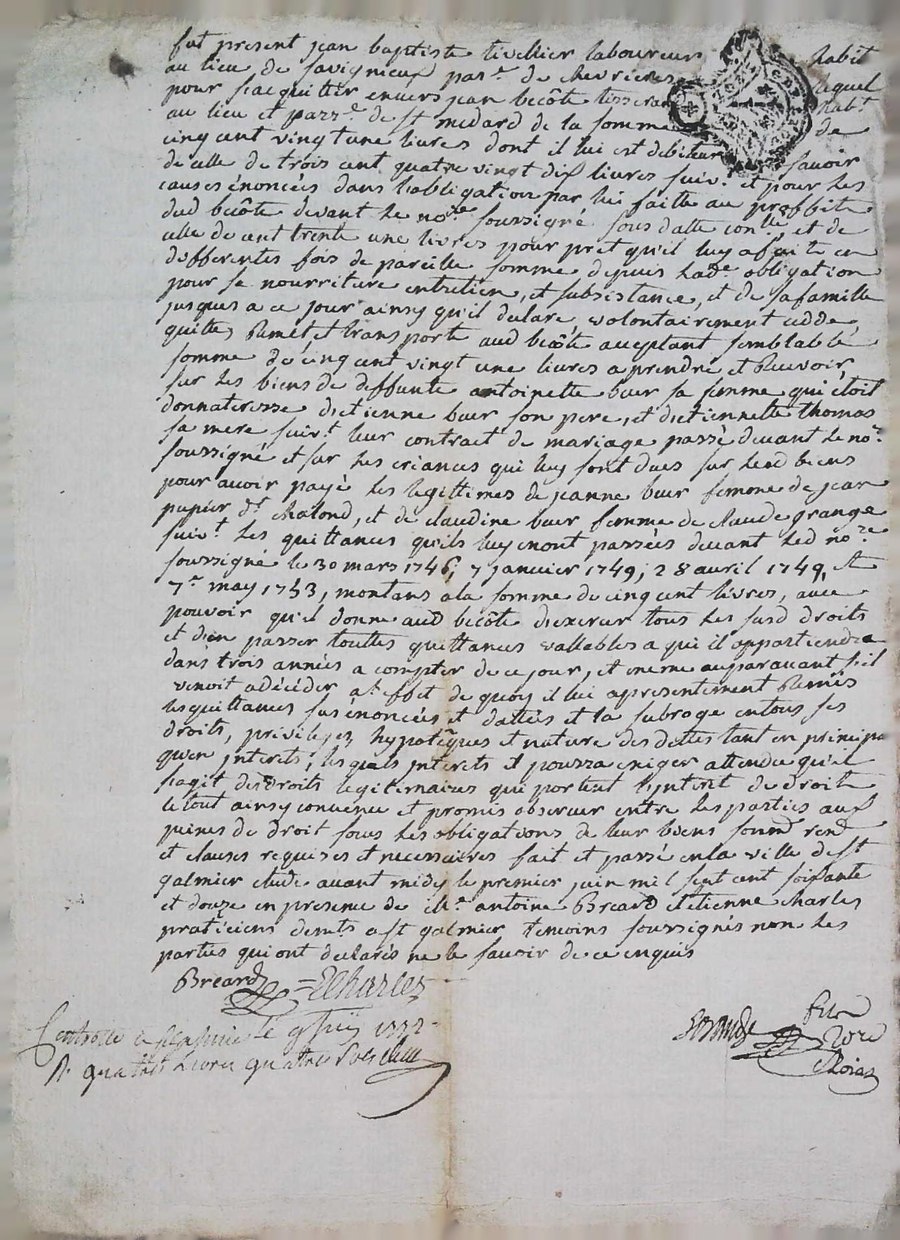 fut present jean baptiste tivellier laboureur habit
au lieu de savigneux par.e de chevrieres lequel
pour s'acquitter envers jean becôte tisseran hab.t
au lieu et parr.e de st medard de la somme de
cinq cent vingt une livres dont il lui est debiteur savoir
de celle de trois cent quatre vingt dix livres suiv.t et pour les
causes énoncées dans l'obligation par lui faitte au proffit
dud becôte devant le no.re soussigné sous datte et de
celle de cent trente une livres pour pret qu'il luy a fait en
differentes fois de pareille somme depuis lade obligation
pour se nourriture entretien, et subsistance, et de sa famille
jusques a ce jour ainsy qu'il declare, volontairement cedde,
quitte, Remet et transporte aud becôte acceptant semblable
somme de cinq cent vingt une livres a prendre et Recevoir,
sur les biens de deffunte antoinette buer sa femme qui étoit
donnateresse d'etienne buer son pere, et d'etiennette thomas
sa mere suiv.t leur contract de mariage passé devant le no.re
soussigné et sur les criances qui luy sont dues sur lesd biens
pour avoir payé les legittimes de jeanne buer femme de jean
papier d.t chalond, et de claudine buer femme de claude grange
suiv.t les quittances qu'ils luy en ont passées devant led no.re
soussigné le 30 mars 1746, 7 janvier 1749, 28 avril 1749, et
7.e may 1753, montans a la somme de cinq cent livres, avec
pouvoir qu'il donne aud becôte d'exercer tous les susd droits
et d'en passer touttes quittances vallables a qui il appartiendra
dans trois années a compter de ce jour, et meme auparavant s'il
venoit a décéder a l'effet de quoy il lui a presentement Remis
les quittances sus énoncées et dattées et la subroge en tous ses
droits, privileges, hypotêques et nature des dettes tant en principal
qu'en interets, lesquels interets il pourra exiger attendu qu'il
sagit de droits legitimaires qui portent l'interet de droit
le tout ainsy convenu et promis observer entre les parties aux
peines de droit sous les obligations de leur biens soumd rend
et clauses requises et necessaires fait et passé en la ville de st
galmier etude avant midy le premier juin mil sept cent soixante
et douze en presence de m.e antoine Breard et etienne charles
praticiens dem.ts a st galmier temoins soussignés non les
parties qui ont declarés ne le savoir de ce enquis
Breard Echarles
Controllé a st galmier le 9 juin 1772
R. quatre Livres quatre sols